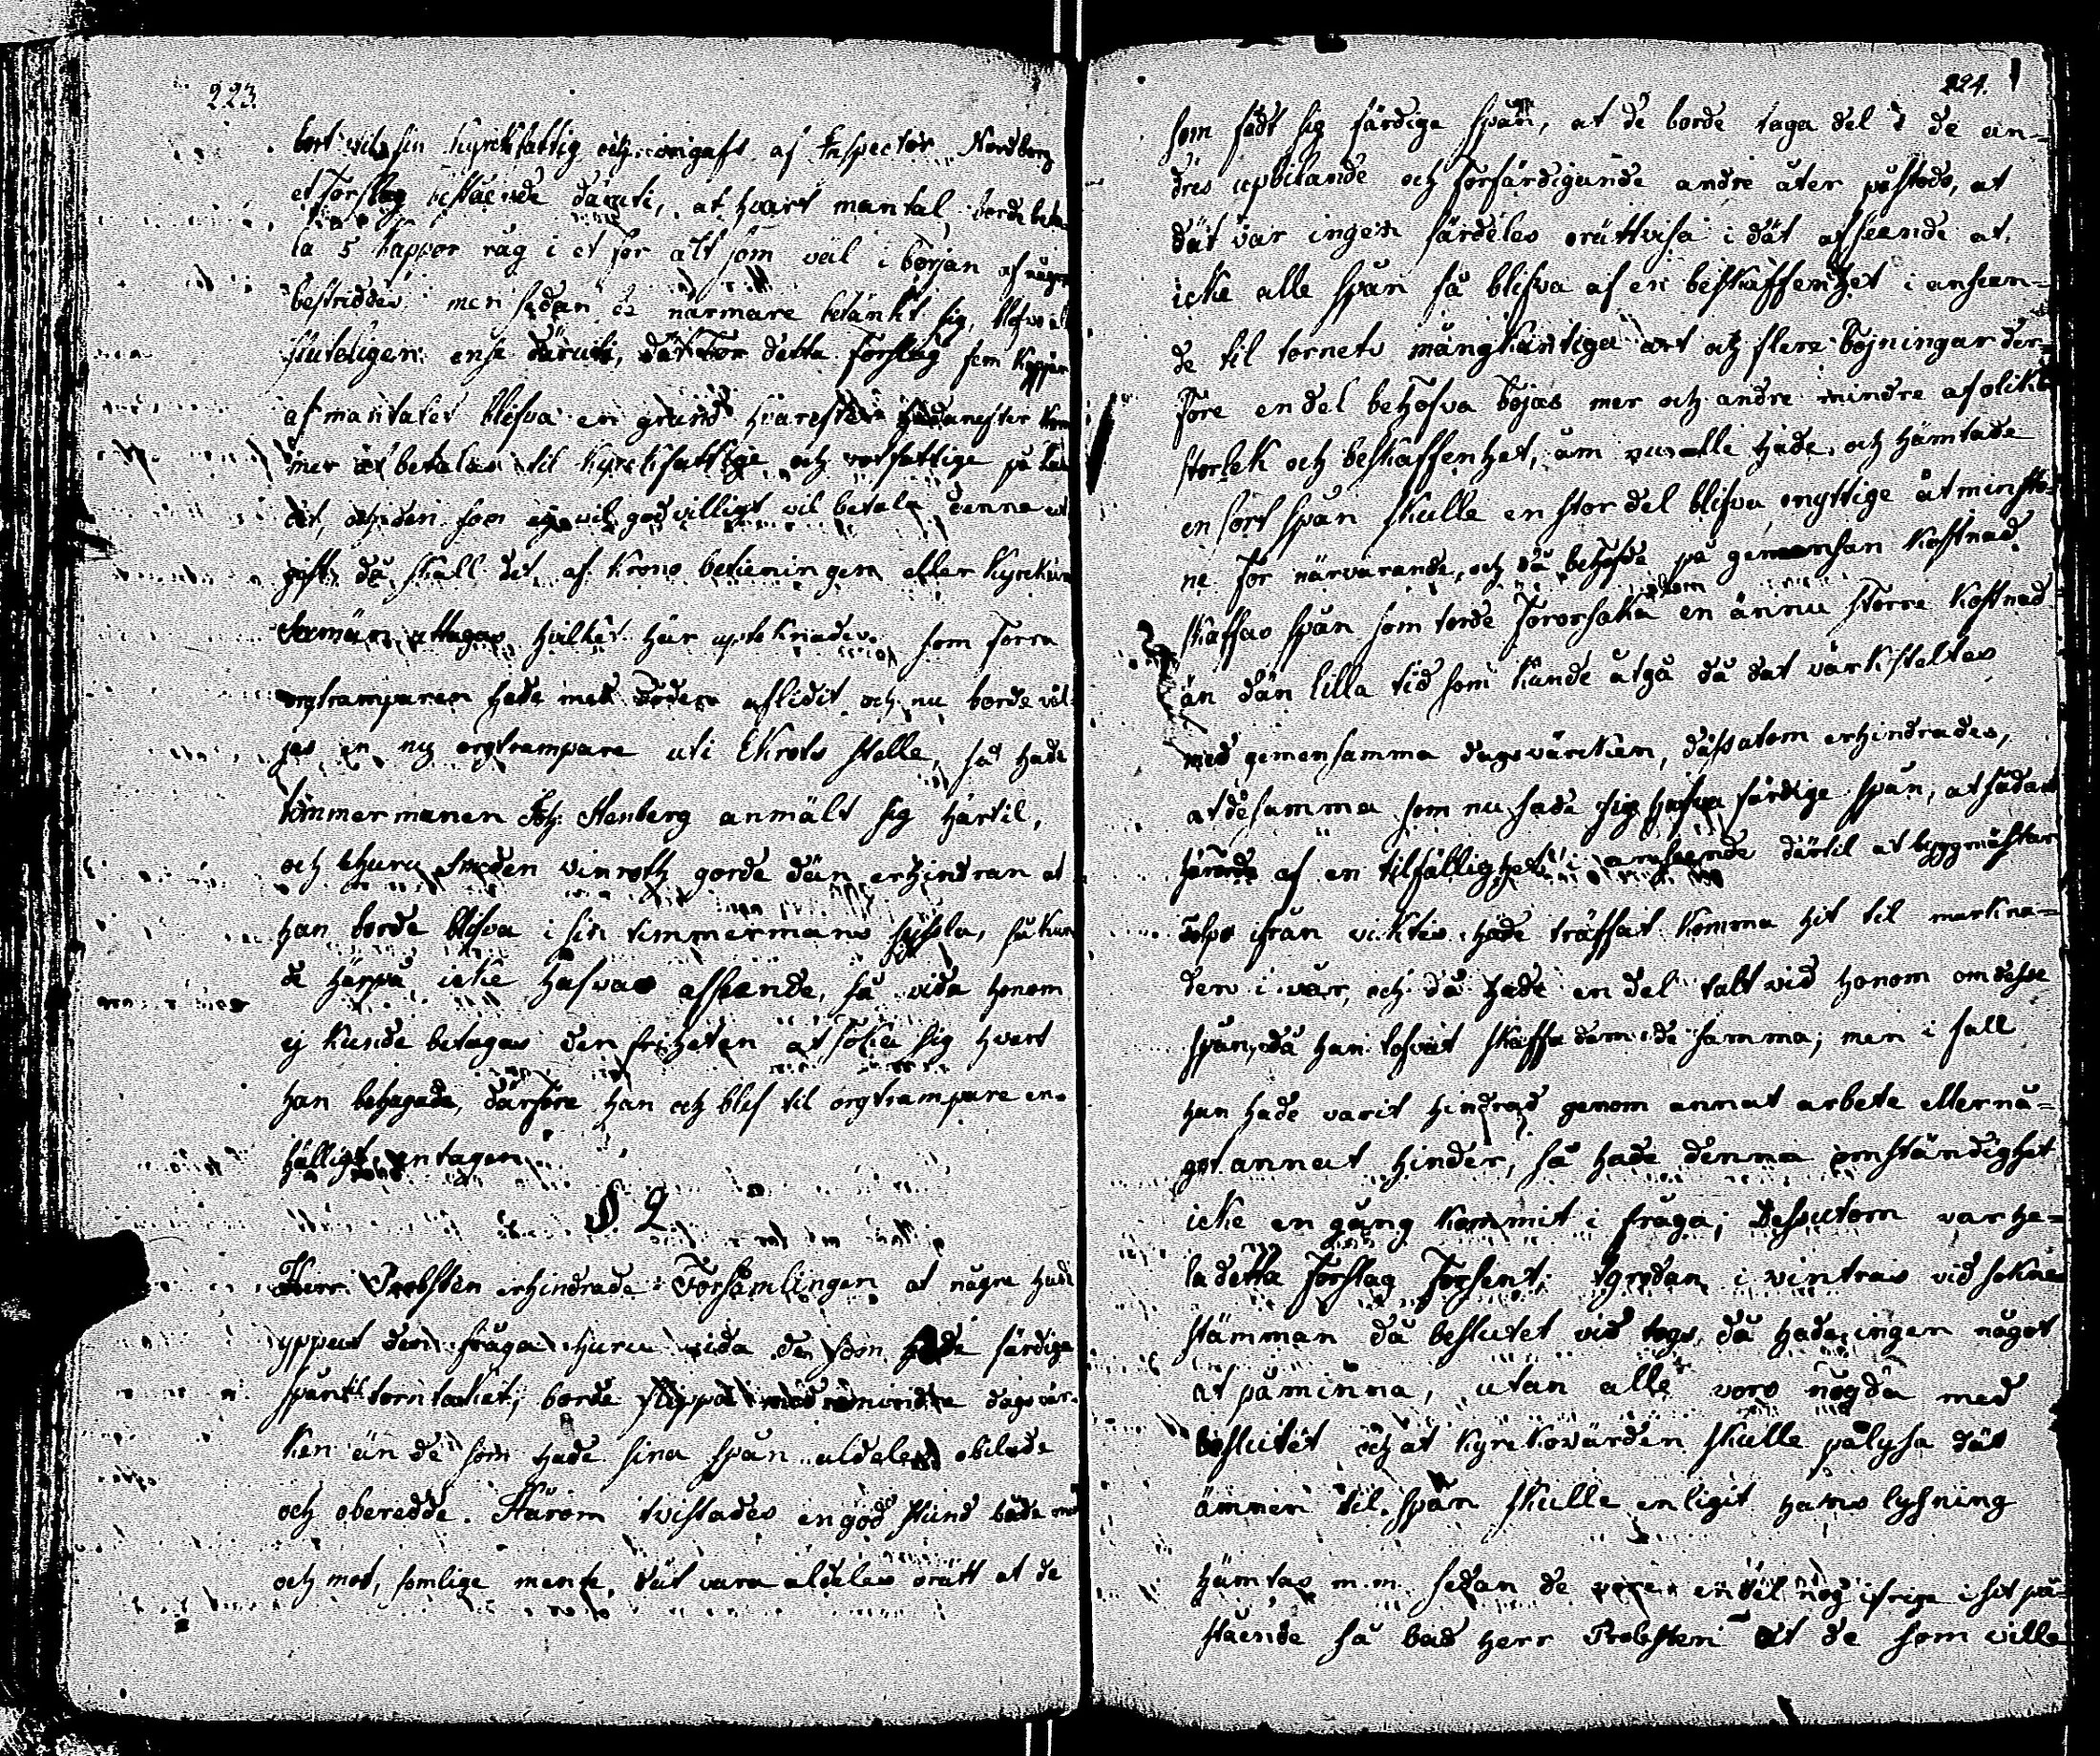 223.
bort til sin Kyrckfattig och ingaft af Inspector Nordberg
et Förslag bestående däruti, at hvart mantal borde beta-
la 5 kappor råg i et för alt som väl i början af någre
bestriddes men sedan de närmare betänkt sig, blefvo alle
sluteligen ense däruti, detta Förslag fem kappor
af mantalet blefva en grund hvarefter hädanefter kom
mer at betalas til Kyrckfattige och rotfattige på
det, och den som ej godvilligt vil betala denna ut
gift, då skall det af Krono betieningen eller Kyrckian
Sexmän uttagas hvilket här uptecknades. som Förra
orgtramparen hade med döden aflidit och nu borde väl-
jas en ny orgtrampare uti Ekrots stelle, så hade
timmermanen Joh: Stenberg anmält sig härtil,
och ehuru Smeden Vinroth gorde dän erhindran at
han borde blifva i sin timmermans syssla, så kun
de härpå icke hafvas afseende, så vida honom
ej kunde betagas den friheten at söka sig hvart
han behagade, därföre han och blef til orgtrampare en-
hälligt antagen.
§. 2
Herr Probsten erhindrade Församlingen at någre hade
yppat den fråga huru vida de som hade färdiga
spån til torntaket, borde slippa med mindre dagsvär-
ken än de som hade sina spån aldeles obilade
och oberedde. Härom tvistades en god stund både med
och mot, somlige mente, dät vara aldeles orätt at de
224.
som fådt sig färdige spån, at de borde taga del i de an-
dres upbilande och Förfärdigande andre åter påstodo, at
dät var ingen särdeles orättvisa i dät afseende at
icke alle spån få blifva af en beskaffenhet i anseen-
de til tornets mångkantiga art och flere Böjningar der-
Före en del behöfva böjas mer och andre mindre af olike
storlek och beskaffenhet, om nu alle hade och hämtade
en sort spån skulle en stor del blifva onyttige åtminsto-
ne för närvarande, och då behöfde på gemensam kostnad
skaffas spån som torde Förorsaka dem en ännu större kostnad
än dän lilla tid som kunde åtgå då dät värkstältes
med gemensamma dagsvärken, dässutom erhindrades,
at de samma som nu sade sig hafva färdige spån, at sådant
härrörde af en tilfällighet i anseende därtil at byggmästar
ifrån hade träffat komma hit til markna-
den i vår, och då hade en del talt vid honom om desse
spån, då han lofvat skaffa dem de samma; men i fall
han hade varit hindrad genom annat arbete eller nå-
got annat hinder, så hade denna omständighet
icke en gång kommit i fråga; Dessutom var he-
la detta Förslag Försent; i vintras vid sokne
stämman då beslutet vid togs, då hade ingen något
at påminna, utan alle voro nögda med
beslutet och at Kyrckovärden skulle pålysa dät
ämnen til spån skulle enligit hans lysning
hämtas m.m. sedan de voro en del nog ifrige i sit på-
stående så bad Herr Probsten at de som ville